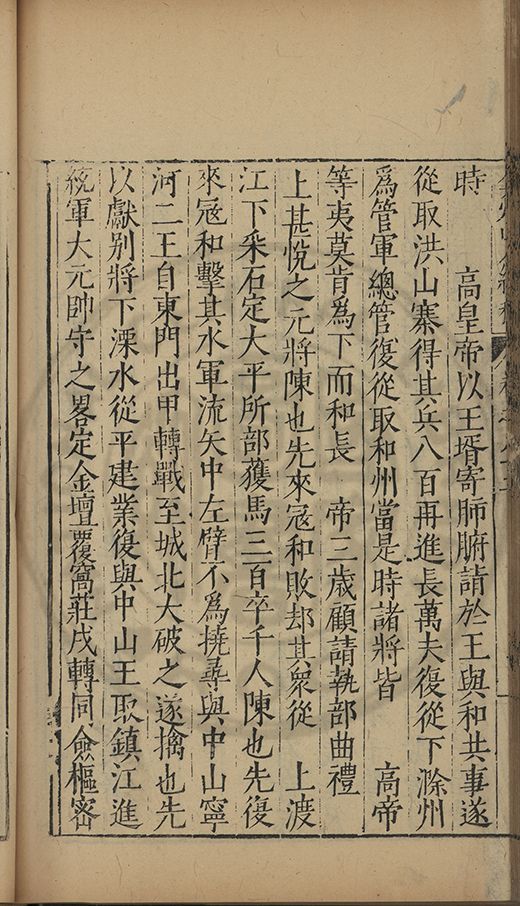 時　高皇帝以王壻寄肺腑請於王與和共事遂
從取洪山寨得其兵八百再進長萬夫復從下滁州
爲管軍總管復從取和州當是時諸將皆　高帝
等夷莫肯爲下而和長　帝三歲顧請執部曲禮
上甚悅之元將陳也先來冦和敗却其衆從　上渡
江下采石定大平所部獲馬三百卒千人陳也先復
來冦和擊其水軍流矢中左臂不爲撓尋與中山寧
河二王自東門出甲轉戰至城北大破之遂擒也先
以獻别將下溧水從平建業復與中山王取鎮江進
統軍大元帥守之畧定金壇覆窩莊戌轉同僉樞密